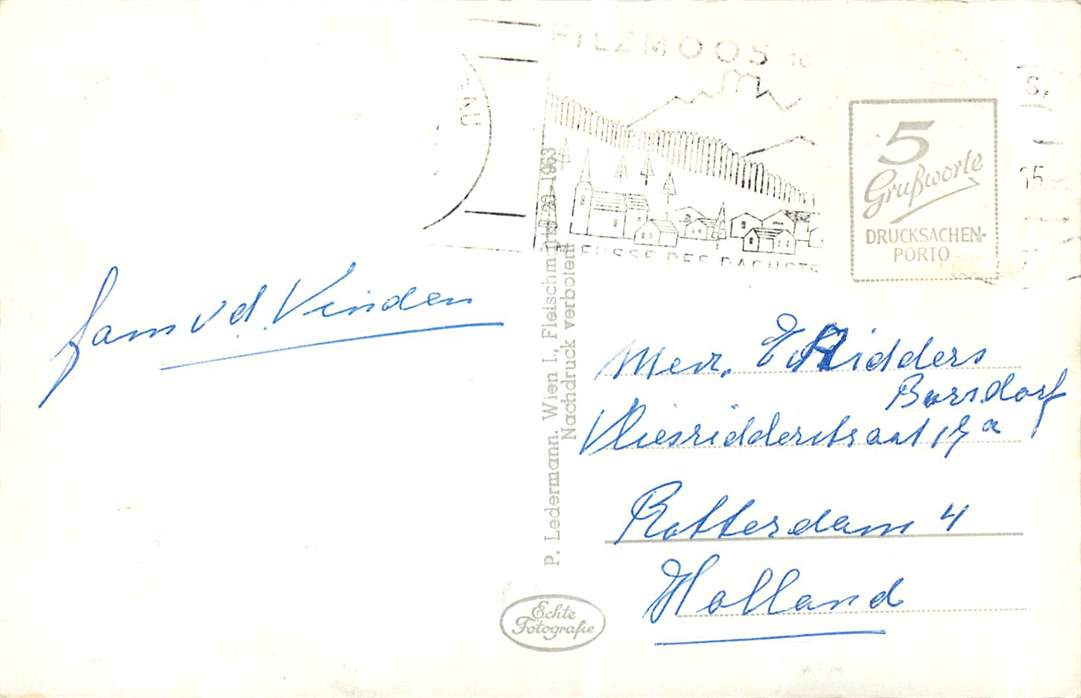 FILZMOOS
FUSSE DES DACHST
5
Grußworte
DRUCKSACHEN-
PORTO
P. Ledermann, Wien I., Fleischm 1963
Nachdruck verboten
fam v d. Vinden
Mevr. Ridders
Borsdorf
Vliesridderstraat 17a
Rotterdam 4
Holland
Echte
Fotografie